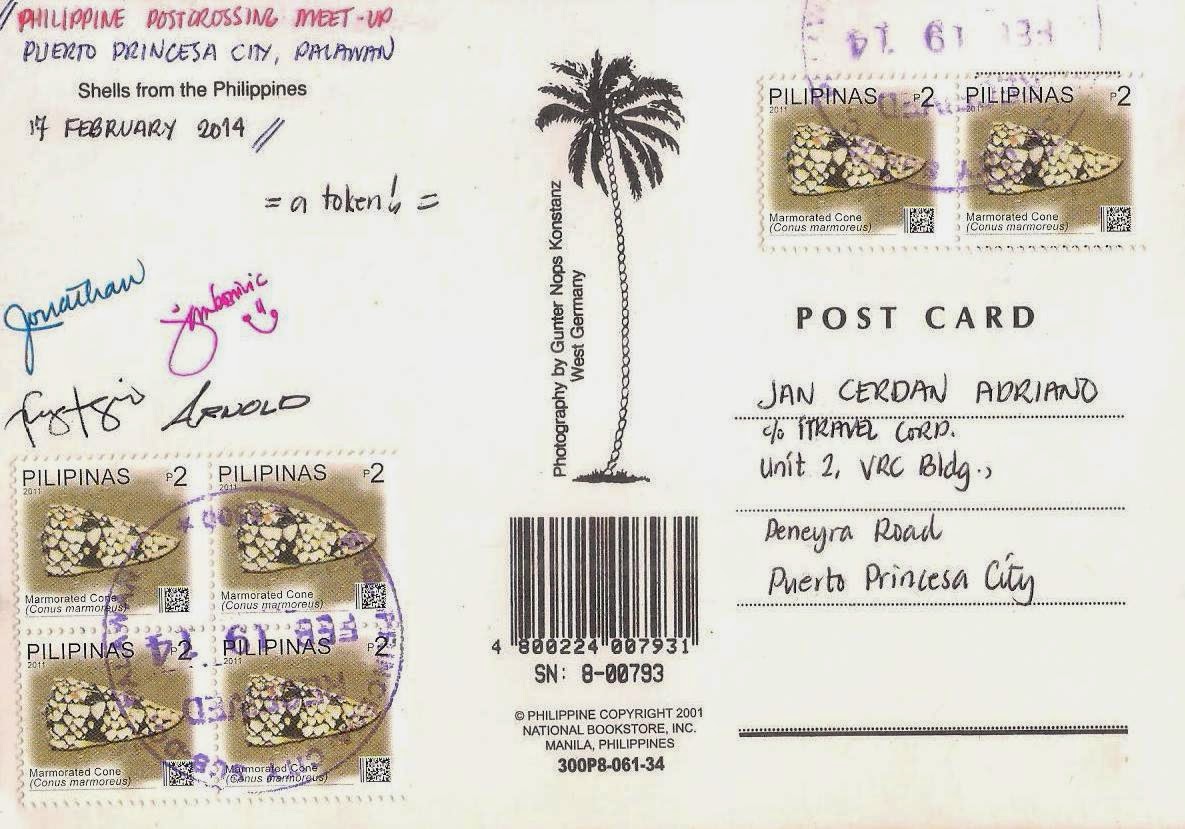 // PHILIPPINE POSTCROSSING MEET-UP
PUERTO PRINCESA CITY, PALAWAN
Shells from the Philippines
17 FEBRUARY 2014 //
= a token! =
Jonathan
ARNOLD
PILIPINAS P2
2011
Marmorated Cone
(Conus marmoreus)
PILIPINAS P2
2011
Marmorated Cone
(Conus marmoreus)
PILIPINAS P2
2011
Marmorated Cone
(Conus marmoreus)
PILIPINAS P2
2011
Marmorated Cone
(Conus marmoreus)
FEB 19 14
RECEIVED
Photography by Gunter Nops Konstanz
West Germany
4 800224 007931
SN: 8-00793
© PHILIPPINE COPYRIGHT 2001
NATIONAL BOOKSTORE, INC.
MANILA, PHILIPPINES
300P8-061-34
FEB 19 14
PILIPINAS P2
2011
Marmorated Cone
(Conus marmoreus)
PILIPINAS P2
2011
Marmorated Cone
(Conus marmoreus)
POST CARD
JAN CERDAN ADRIANO
c/o ITRAVEL CORP.
Unit 2, VRC Bldg.,
Peneyra Road
Puerto Princesa City